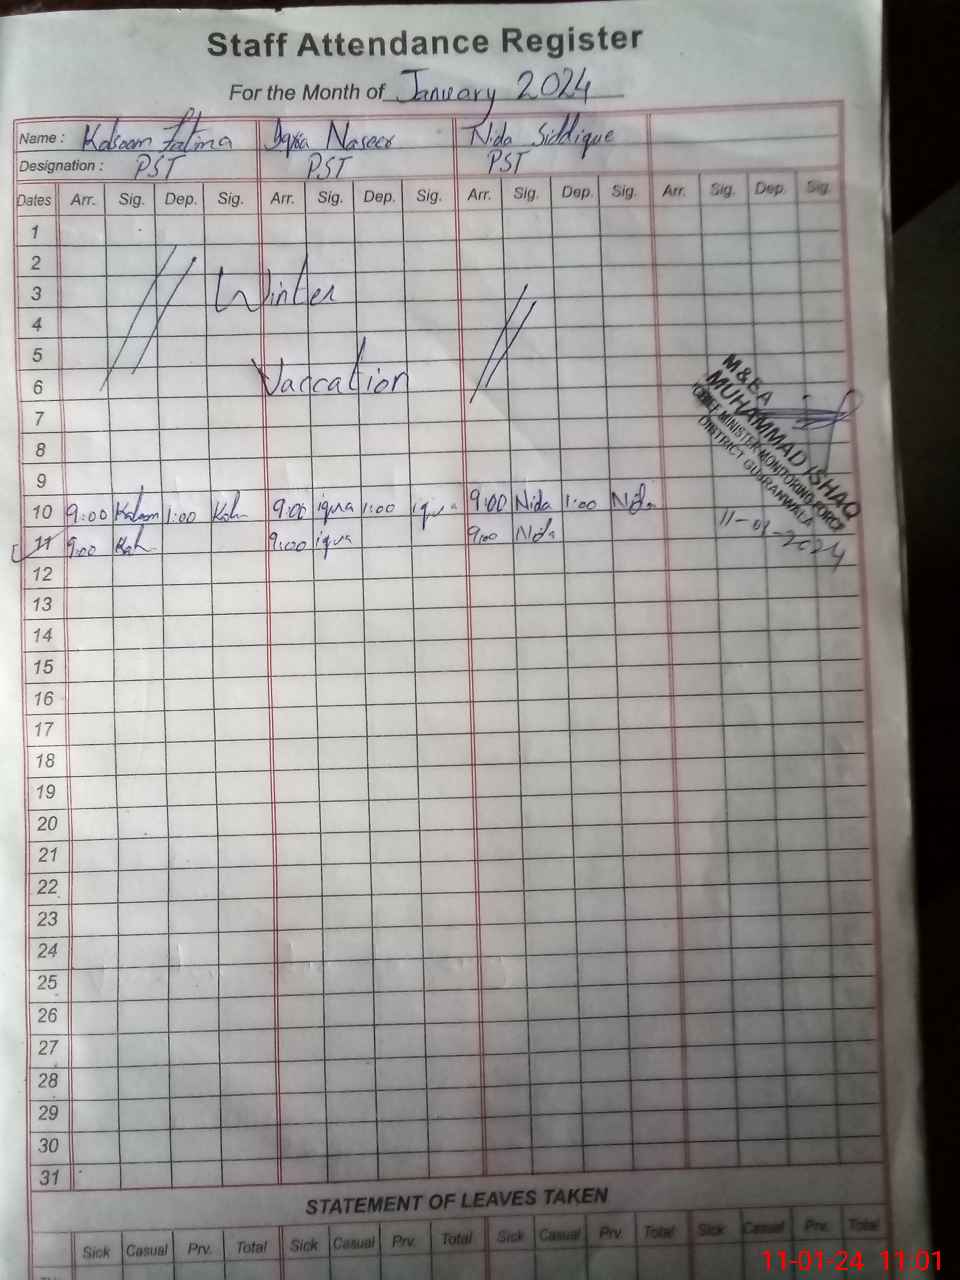 Staff Attendance Register
For the Month of January 2024
Name : Kalsoom Fatima Iqra Naseer Nida Siddique
Designation : PST PST PST
Dates Arr. Sig. Dep. Sig. Arr. Sig. Dep. Sig. Arr. Sig. Dep. Sig. Arr. Sig. Dep. Sig.
1
2
3 Winter
4
5
6 Vaccation
7
8
9
10 9:00 Kalsoom 1:00 9:00 iqra 1:00 iqra 9:00 Nida 1:00 Nida
11 9:00 9:00 iqra 9:00 Nida
12
13
14
15
16
17
18
19
20
21
22
23
24
25
26
27
28
29
30
31
M&EA
MUHAMMAD ISHAQ
CHIEF MINISTER MONITORING FORCE
DISTRICT GUJRANWALA
11-01-2024
STATEMENT OF LEAVES TAKEN
Sick Casual Prv. Total Sick Casual Prv. Total Sick Casual Prv. Total Sick Casual Prv. Total
11-01-24 11:01